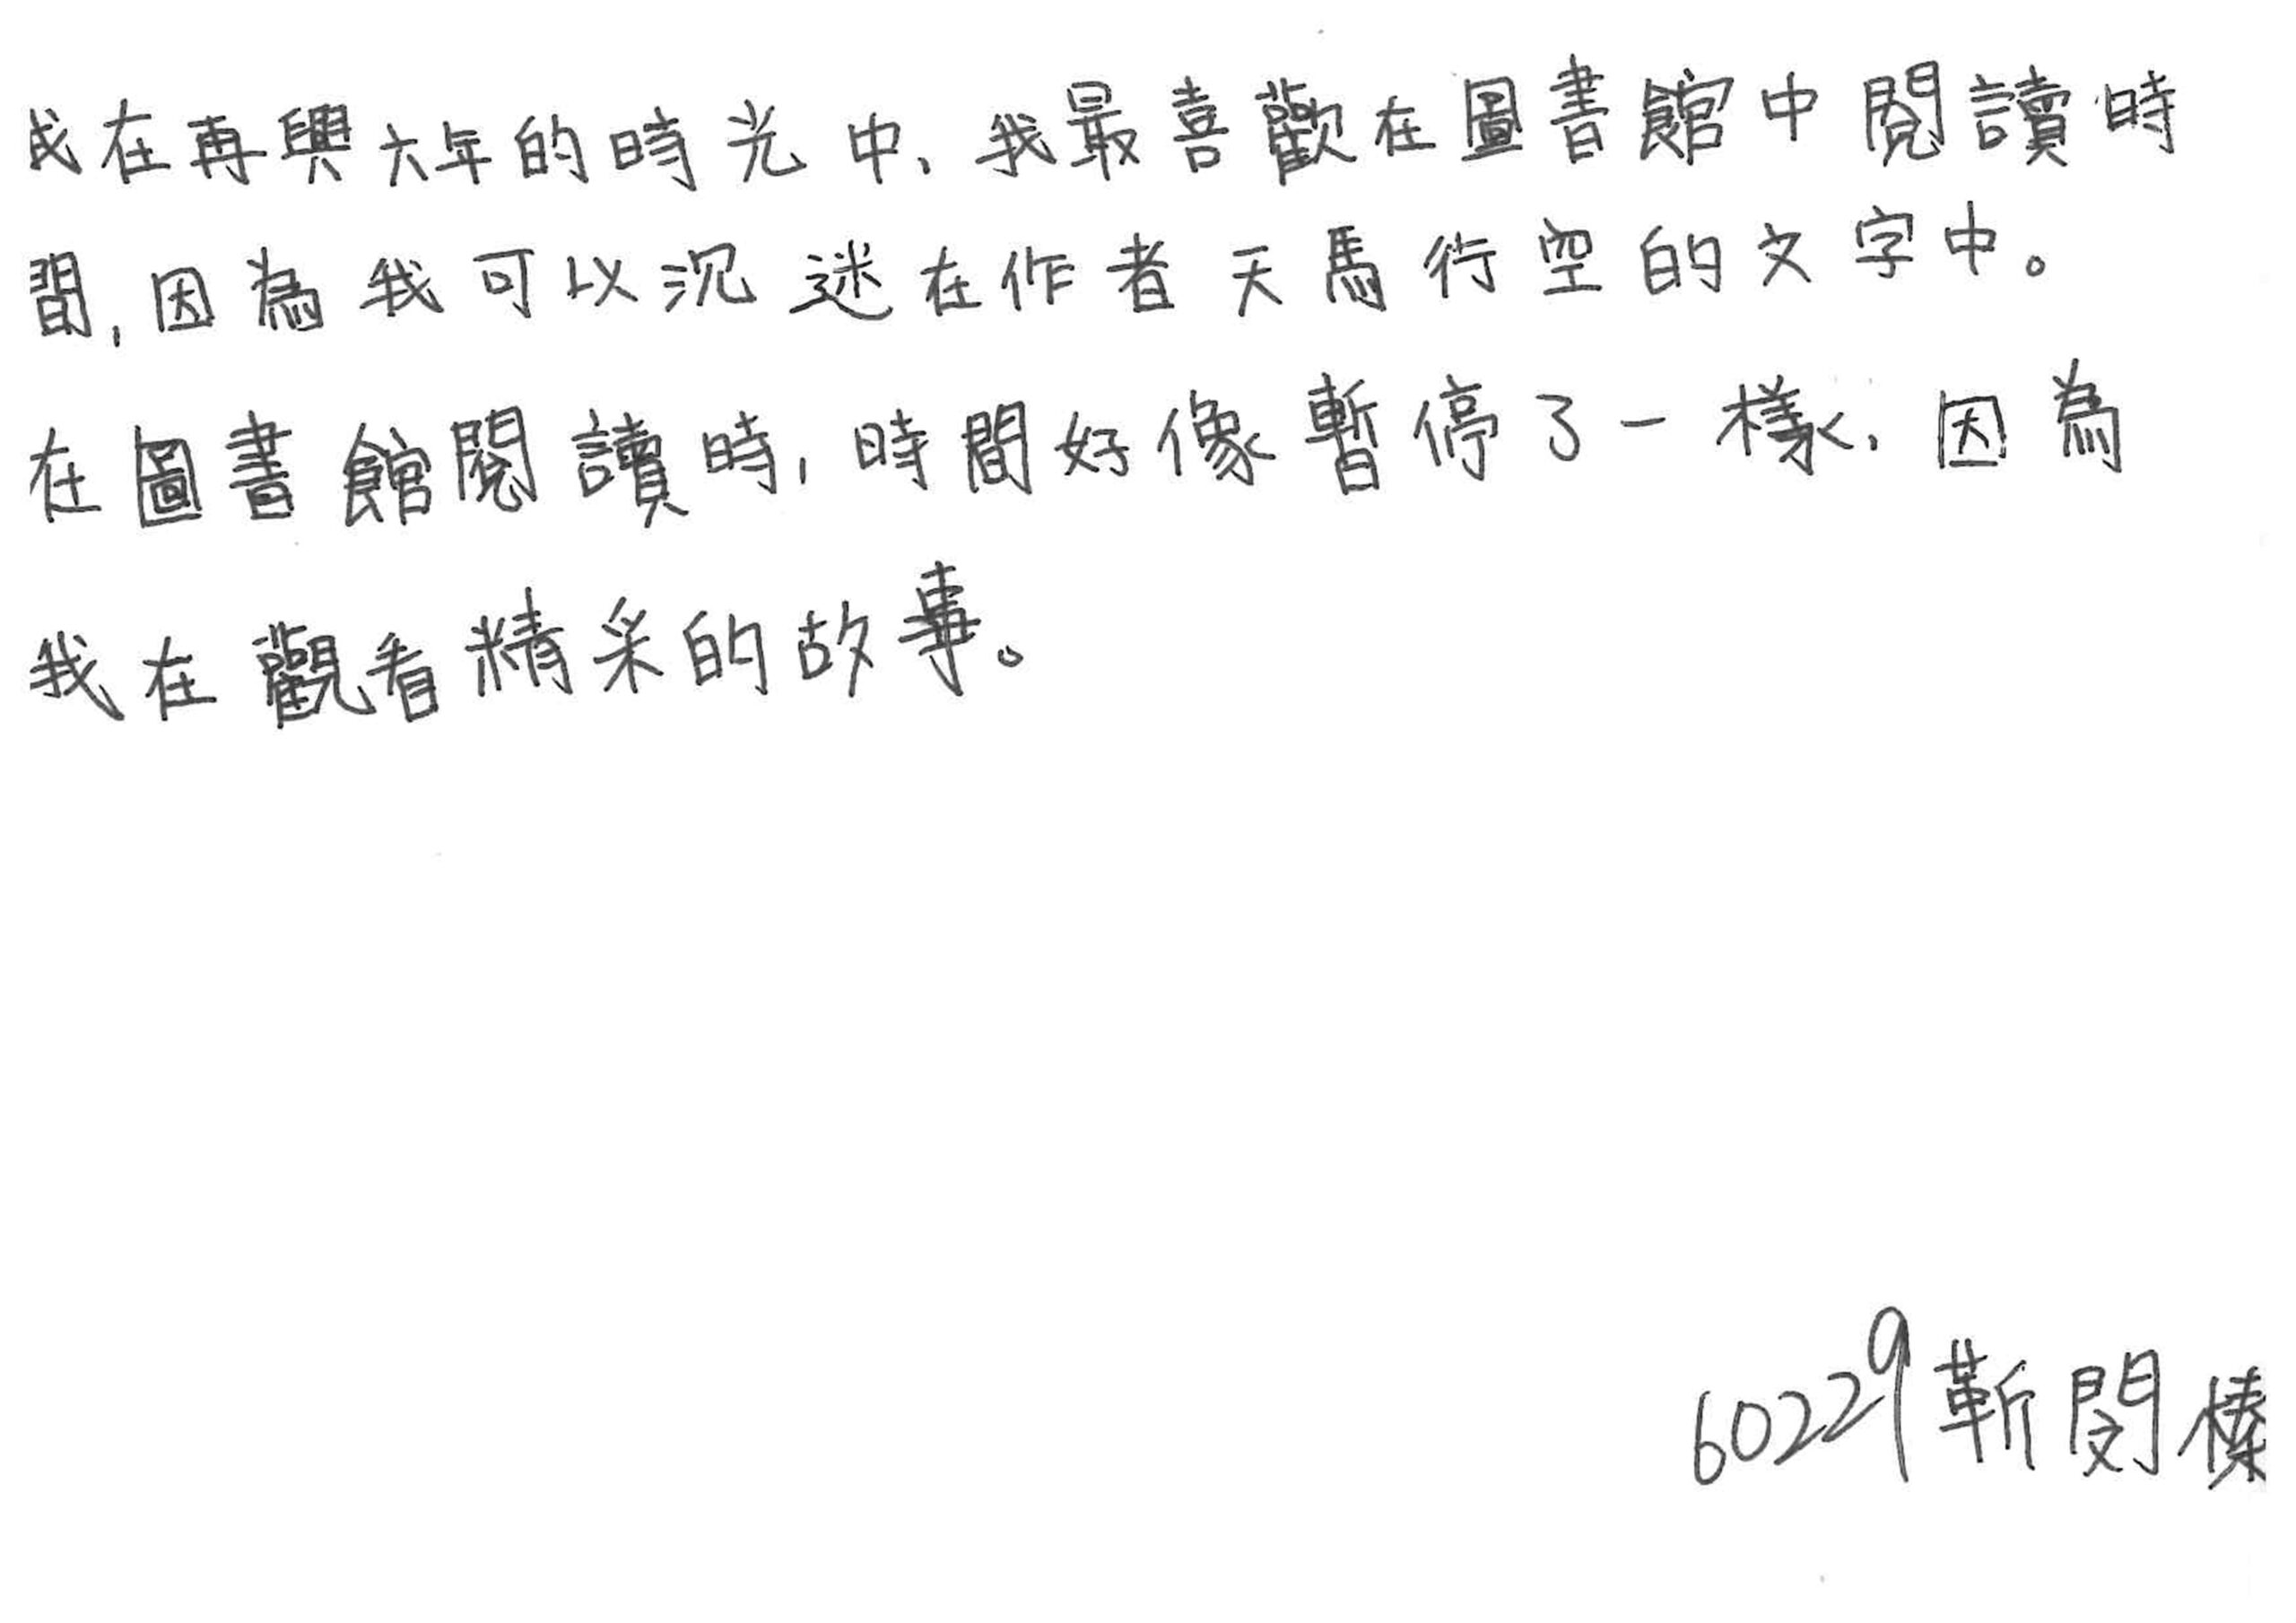 我在再興六年的時光中，我最喜歡在圖書館中閱讀時
間，因為我可以沉迷在作者天馬行空的文字中。
在圖書館閱讀時，時間好像暫停了一樣，因為
我在觀看精采的故事。
60229 靳閔榛